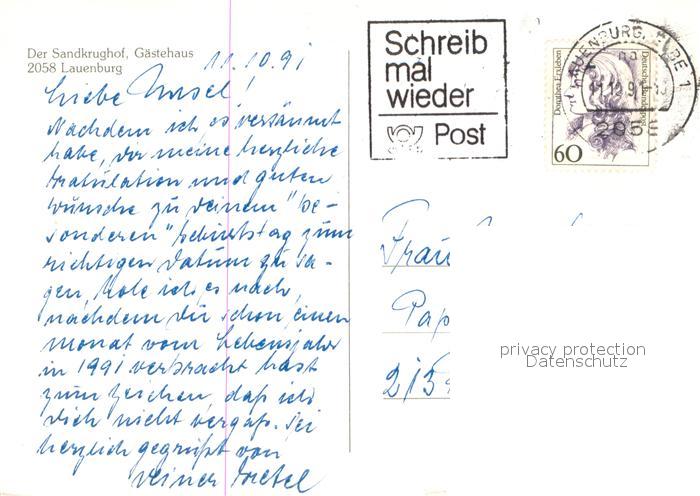 Der Sandkrughof, Gästehaus
2058 Lauenburg
11.10.91
Liebe Ursel!
Nachdem ich es versäumt
habe, Dir meine herzliche
Gratulation und guten
Wünsche zu Deinem "be-
sonderen" Geburtstag zum
richtigen Datum zu sa-
gen, hole ich es nach,
nachdem Du schon einen
Monat vom Lebensjahr
in 1991 verbracht hast
zum Zeichen, daß ich
Dich nicht vergaß. Sei
herzlich gegrüßt von
Deiner Gretel
Schreib
mal
wieder
Post
LAUENBURG, ELBE 1
2058
Dorothea Erxleben
Deutsche Bundespost
60
Frau
Pap
215
privacy protection
Datenschutz